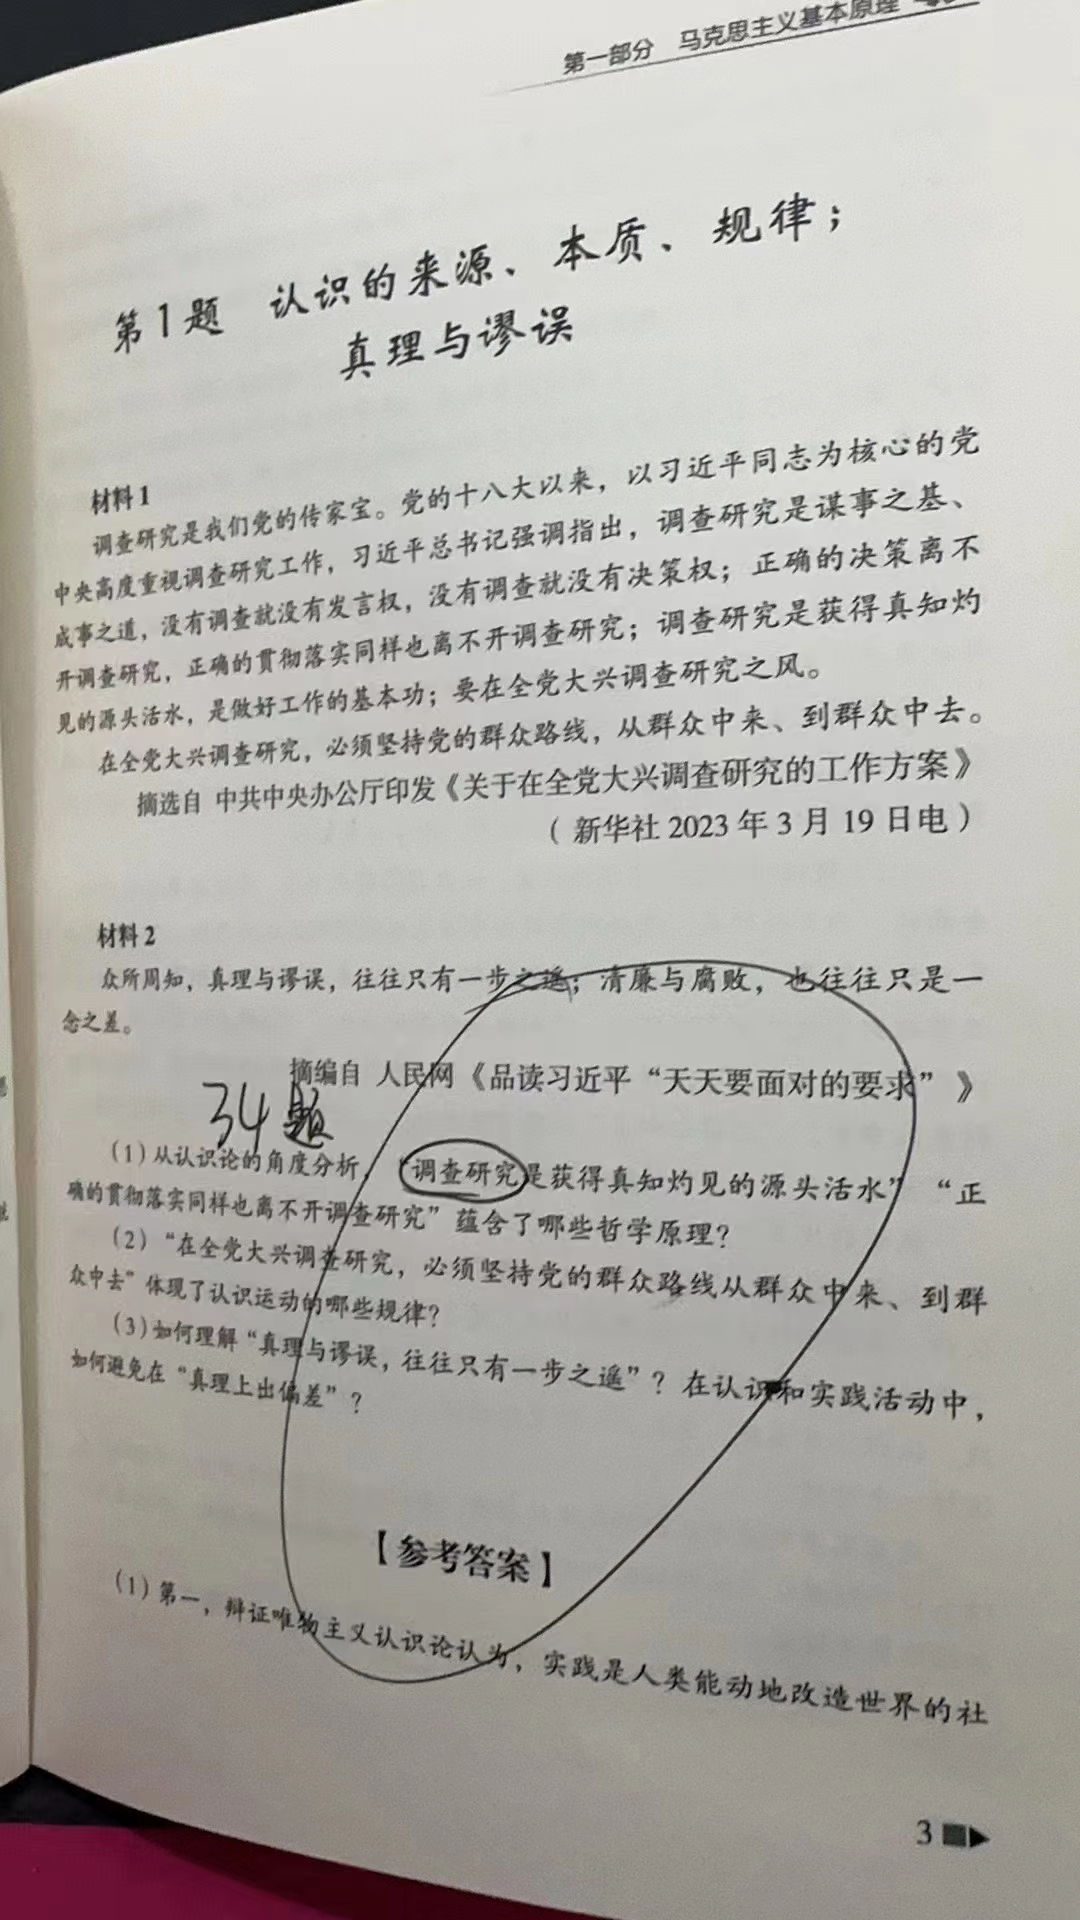 第一部分 马克思主义基本原理
第1题 认识的来源、本质、规律；
真理与谬误
材料1
调查研究是我们党的传家宝。党的十八大以来，以习近平同志为核心的党
中央高度重视调查研究工作，习近平总书记强调指出，调查研究是谋事之基、
成事之道，没有调查就没有发言权，没有调查就没有决策权；正确的决策离不
开调查研究，正确的贯彻落实同样也离不开调查研究；调查研究是获得真知灼
见的源头活水，是做好工作的基本功；要在全党大兴调查研究之风。
在全党大兴调查研究，必须坚持党的群众路线，从群众中来、到群众中去。
摘选自 中共中央办公厅印发《关于在全党大兴调查研究的工作方案》
（新华社2023年3月19日电）
材料2
众所周知，真理与谬误，往往只有一步之遥；清廉与腐败，也往往只是一
念之差。
摘编自 人民网《品读习近平“天天要面对的要求”》
34题
（1）从认识论的角度分析，“调查研究是获得真知灼见的源头活水”“正
确的贯彻落实同样也离不开调查研究”蕴含了哪些哲学原理？
（2）“在全党大兴调查研究，必须坚持党的群众路线从群众中来、到群
众中去”体现了认识运动的哪些规律？
（3）如何理解“真理与谬误，往往只有一步之遥”？在认识和实践活动中，
如何避免在“真理上出偏差”？
【参考答案】
（1）第一，辩证唯物主义认识论认为，实践是人类能动地改造世界的社
3